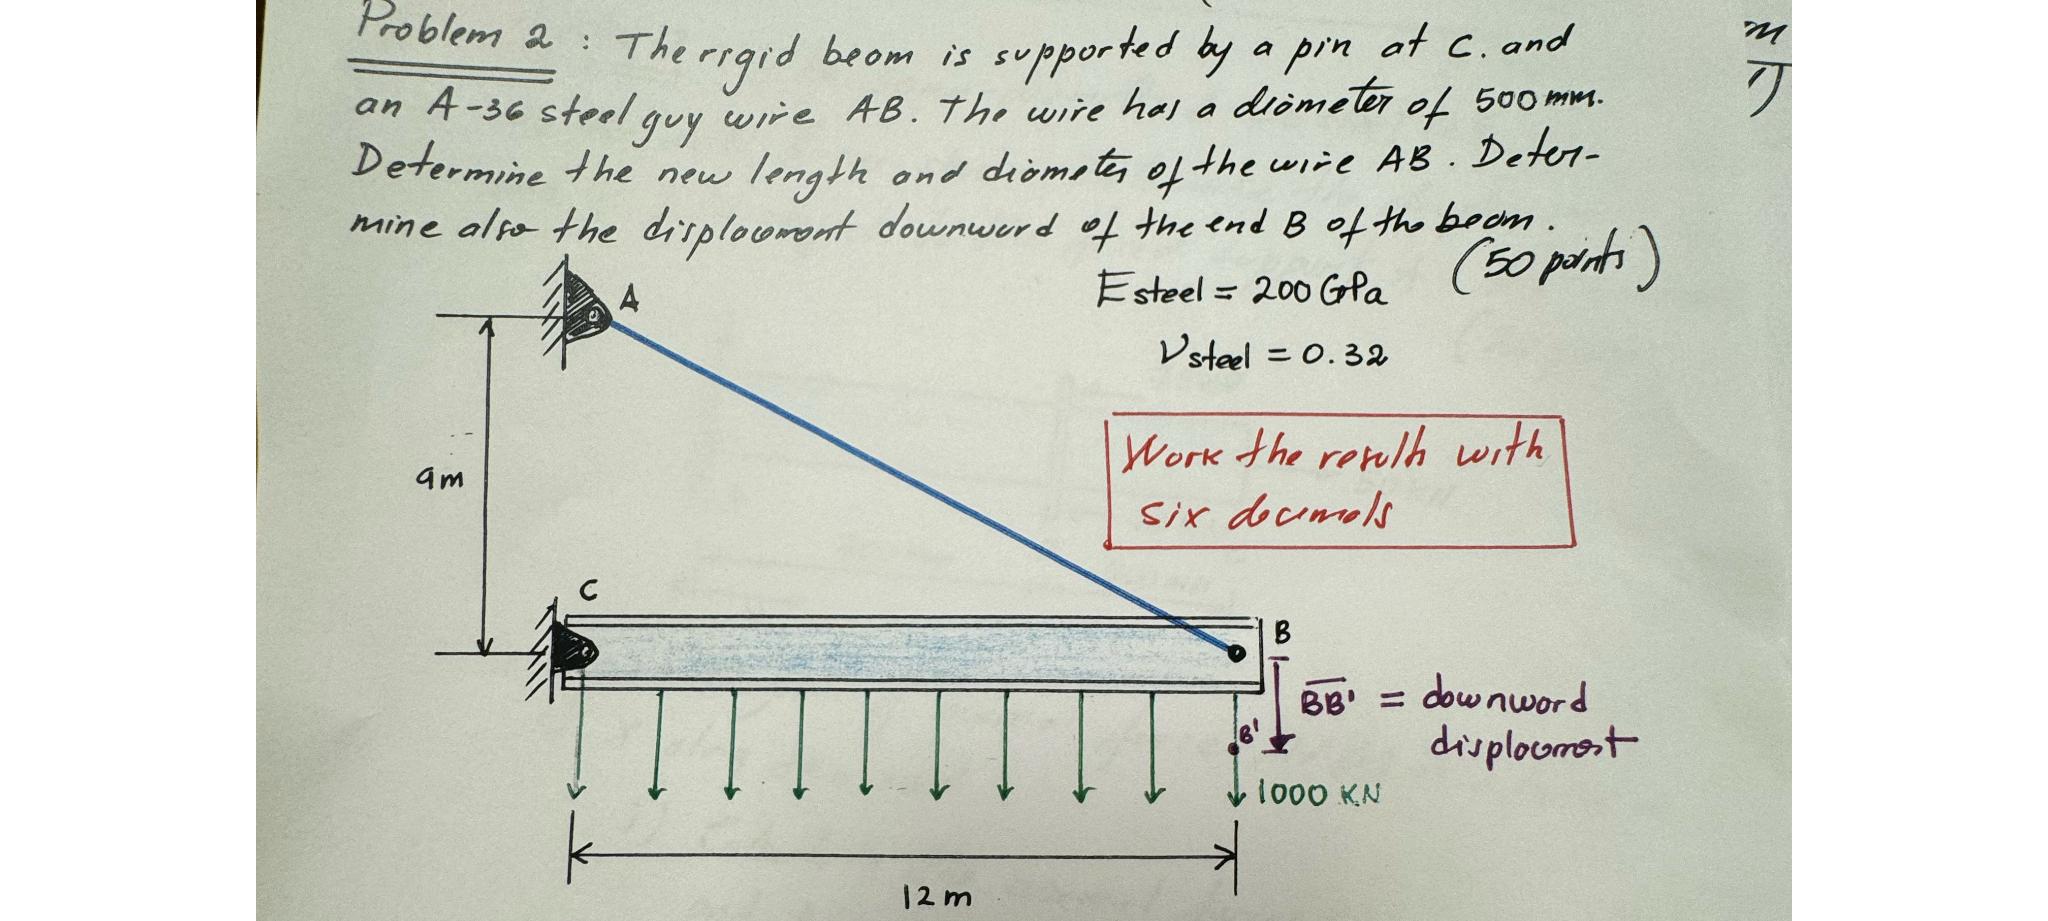 Problem 2 : The rigid beam is supported by a pin at C. and
an A-36 steel guy wire AB. The wire has a diameter of 500 mm.
Determine the new length and diameter of the wire AB. Deter-
mine also the displacement downward of the end B of the beam.
(50 points)
E steel = 200 GPa
ν steel = 0.32
A
Work the result with
six decimals
9m
C
B
BB' = downward
displacement
B'
1000 KN
12 m